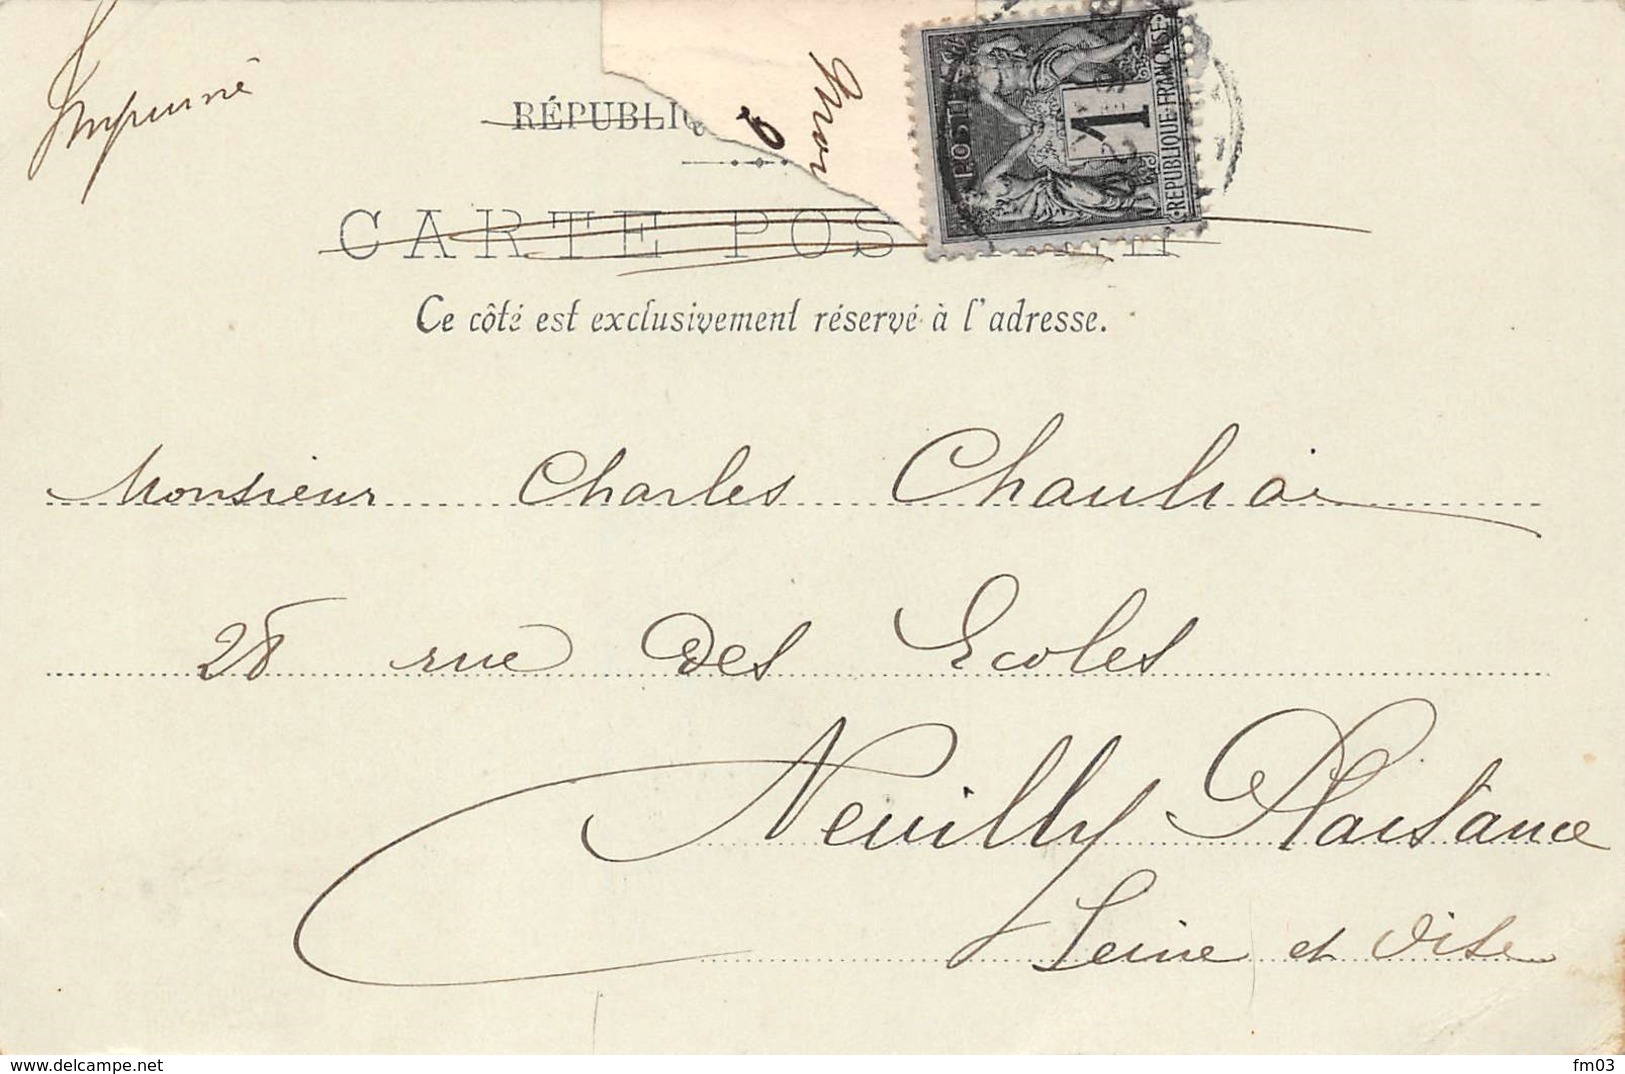 Imprimé
RÉPUBLIQ
CARTE POS
Ce côté est exclusivement réservé à l'adresse.
POSTES
1
REPUBLIQUE FRANÇAISE
Monsieur Charles
28 rue des Ecoles
Neuilly Plaisance
Seine et Oise
www.delcampe.net
fm03